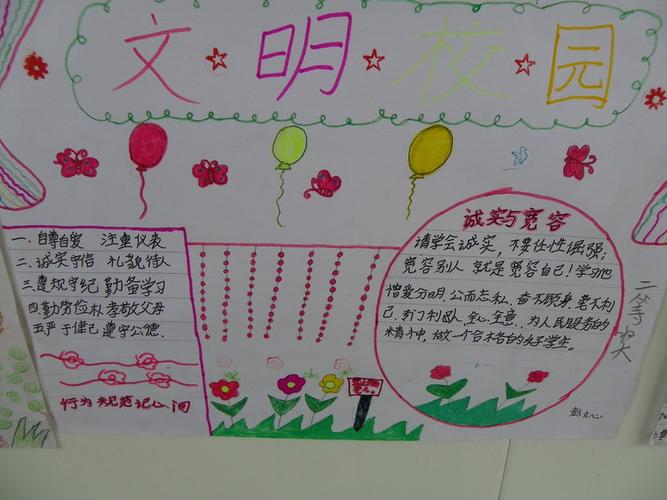 文明校园
一、自尊自爱 注重仪表
二、诚实守信 礼貌待人
三遵规守纪 勤奋学习
四勤劳俭朴 孝敬父母
五严于律己 遵守公德.
行为规范记心间
诚实与宽容
请学会诚实，不要任性倔强；
宽容别人 就是宽容自己！学习他
憎爱分明、公而忘私、奋不顾身、毫不利
己、专门利人、全心全意、为人民服务的
精神，做一个合格的好学生。
二等奖